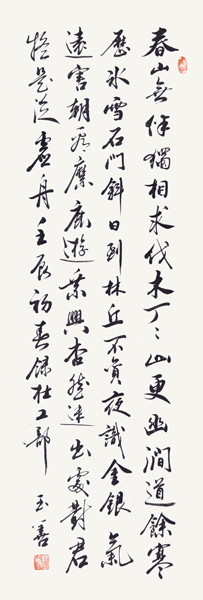 春山無伴獨相求伐木丁々山更幽澗道餘寒
歷冰雪石門斜日到林丘不貪夜識金銀氣
遠害朝看麋鹿遊乘興杳然迷出處對君
疑是泛虛舟壬辰初春錄杜工部
玉善